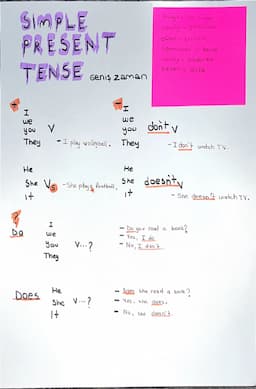 SIMPLE
PRESENT
TENSE GENİŞ ZAMAN
+
I
we
you V
They - I play volleyball.
He
She Vs - She plays football.
it
-
I
we
you don't V
They - I don't watch TV.
He
She doesn't V
it - She doesn't watch TV.
?
Do I
we
you V...?
They
- Do you read a book?
- Yes, I do
- No, I don't
Does He
She V...?
It
- Does she read a book?
- Yes, she does.
- No, she doesn't.